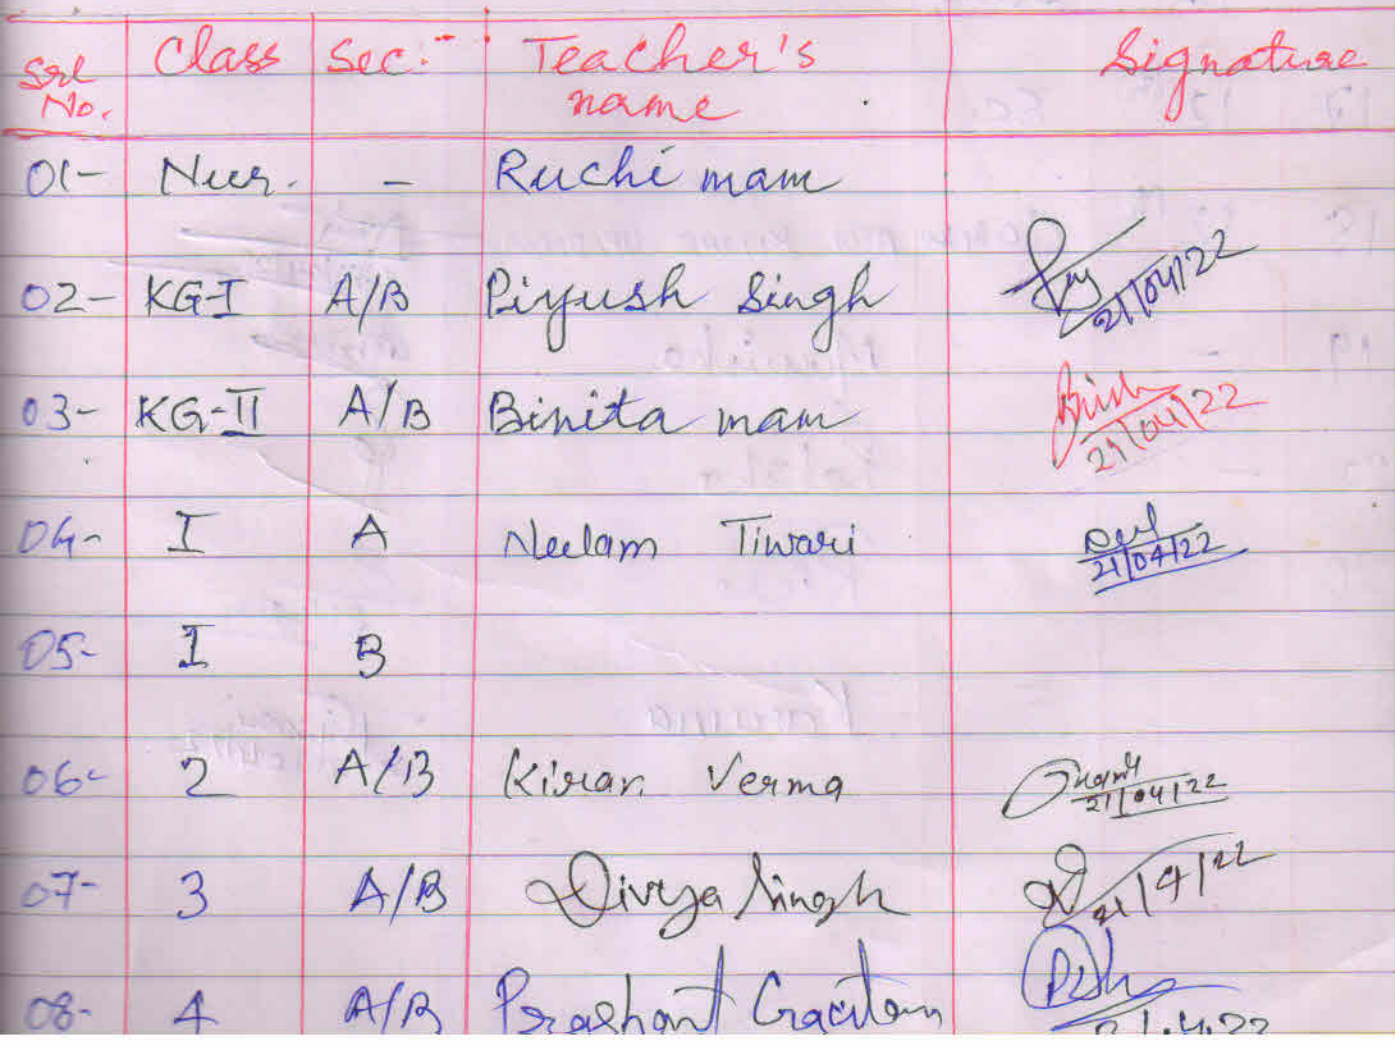 Srl No. Class Sec: Teacher's name Signature
01- Nur. - Ruchi mam
02- KG-I A/B Piyush Singh 21/04/22
03- KG-II A/B Binita mam 21/04/22
04- I A Neelam Tiwari 21/04/22
05- I B
06- 2 A/B Kiran Verma 21/04/22
07- 3 A/B Divya Singh 21/4/22
08- 4 A/B Prashant Gautam 21.4.22